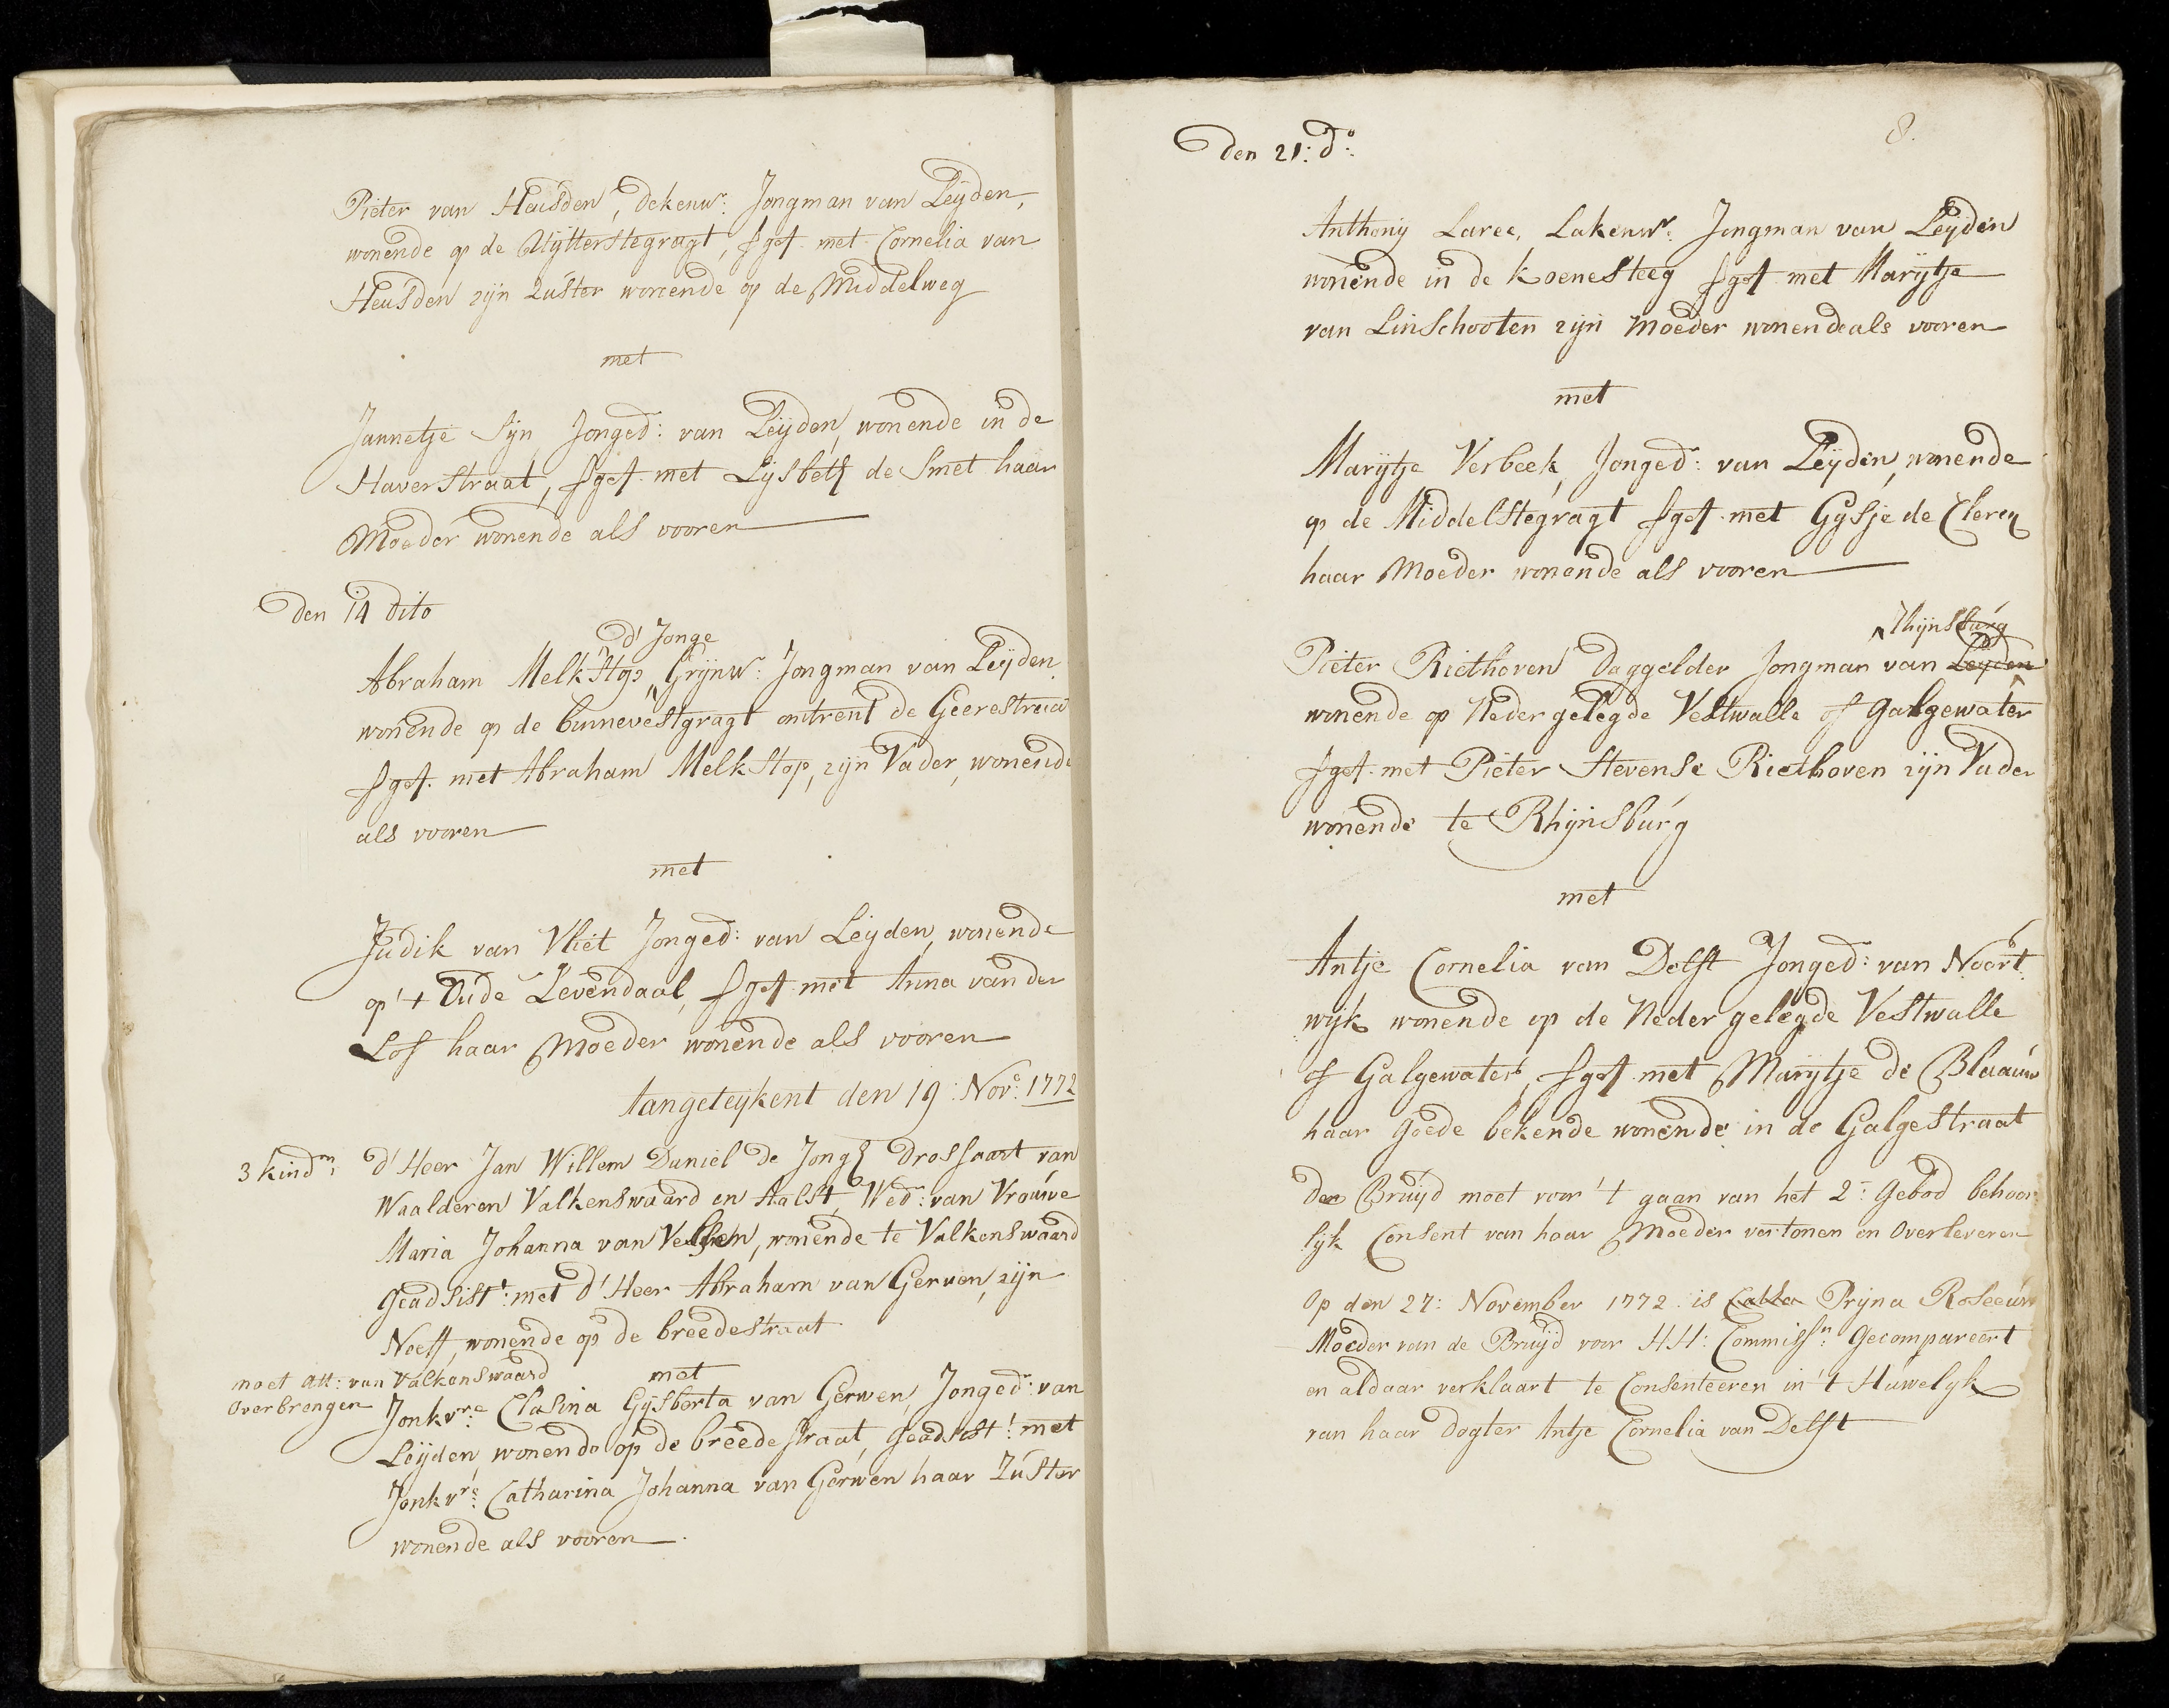 Pieter van Heusden, dekenwr: Jongman van Leijden,
wonende op de Uijtterstegragt, sget. met Cornelia van
Heusden zijn Zuster wonende op de Middelweg
met
Jannetje Sijn Jonged: van Leijden, wonende in de
Haverstraat, sget. met Lijsbeth de Smet haar
Moeder wonende als vooren
den 14 dito
d' Jonge
Abraham Melkstop, Grijnwr: Jongman van Leijden
wonende op de binnevestgragt ontrent de Geerestraat
sget. met Abraham Melkstop, zijn Vader, wonende
als vooren
met
Judik van Vliet Jonged: van Leijden, wonende
op 't Oude Levendaal, sget. met Anna van der
Lof haar Moeder wonende als vooren
Aangeteijkent den 19: Nove: 1772
3 kindrn: d' Heer Jan Willem Daniel de Jongh drossaart van
Waalderen Valkenswaard en Aalst, Wedr: van Vrouwe
Maria Johanna van, wonende te Valkenswaard
Geadsistt: met d' Heer Abraham van Gerwen, zijn
Neeff, wonende op de breedestraat
moet att: van Valkenswaard
overbrengen
met
Jonkvre: Clasina Gijsberta van Gerwen, Jongedr: van
Leijden, wonende op de breedestraat, geadsistt: met
Jonkvre: Catharina Johanna van Gerwen haar Zuster
wonende als vooren
8.
den 21: do:
Anthonij Laree, Lakenwr: Jongman van Leijden
wonende in de Koenesteeg sget. met Marijtje
van Linschooten zijn Moeder wonende als vooren
met
Marijtje Verbeek, Jonged: van Leijden, wonende
op de Middelstegragt sget. met Gijsje de Clercq
haar Moeder wonende als vooren
Rhijnsburg
Pieter Riethoven daggelder Jongman van Leijden
wonende op Neder gelegde Vestwalle of Galgewater
sget. met Pieter Stevense Riethoven zijn Vader
wonende te Rhijnsburg
met
Antje Cornelia van Delft Jonged: van Noort
wijk wonende op de Neder gelegde Vestwalle
of Galgewater, sget. met Marijtje de Blaauw
haar goede bekende wonende in de Galgestraat
den Bruijd moet voor 't gaan van het 2e: Gebod behoor
lijk Consent van haar Moeder vertonen en Overleveren
Op den 27: November 1772 is Prijna Roseeuw
Moeder van de Bruijd voor HH: Commissn: Gecompareert
en aldaar verklaart te Consenteeren in 't Huwelijk
van haar dogter Antje Cornelia van Delft